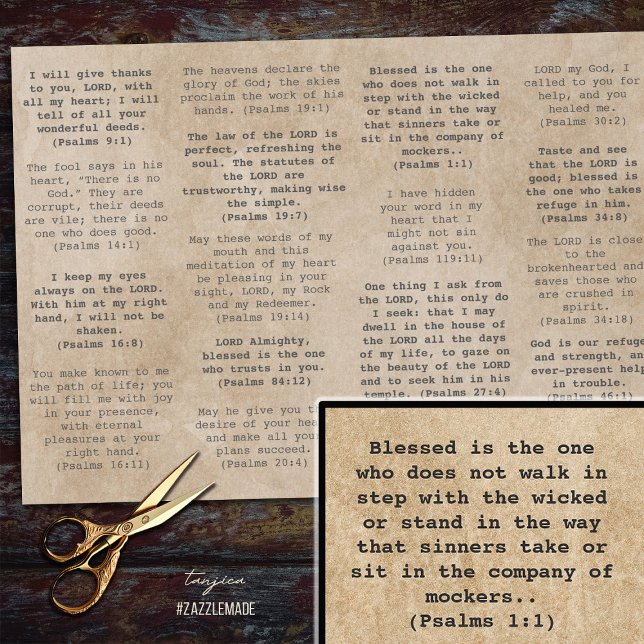 I will give thanks
to you, LORD, with
all my heart; I will
tell of all your
wonderful deeds.
(Psalms 9:1)
The fool says in his
heart, “There is no
God.” They are
corrupt, their deeds
are vile; there is no
one who does good.
(Psalms 14:1)
I keep my eyes
always on the LORD.
With him at my right
hand, I will not be
shaken.
(Psalms 16:8)
You make known to me
the path of life; you
will fill me with joy
in your presence,
with eternal
pleasures at your
right hand.
(Psalms 16:11)
The heavens declare the
glory of God; the skies
proclaim the work of his
hands. (Psalms 19:1)
The law of the LORD is
perfect, refreshing the
soul. The statutes of
the LORD are
trustworthy, making wise
the simple.
(Psalms 19:7)
May these words of my
mouth and this
meditation of my heart
be pleasing in your
sight, LORD, my Rock
and my Redeemer.
(Psalms 19:14)
LORD Almighty,
blessed is the one
who trusts in you.
(Psalms 84:12)
May he give you the
desire of your heart
and make all your
plans succeed.
(Psalms 20:4)
Blessed is the one
who does not walk in
step with the wicked
or stand in the way
that sinners take or
sit in the company of
mockers..
(Psalms 1:1)
I have hidden
your word in my
heart that I
might not sin
against you.
(Psalms 119:11)
One thing I ask from
the LORD, this only do
I seek: that I may
dwell in the house of
the LORD all the days
of my life, to gaze on
the beauty of the LORD
and to seek him in his
temple. (Psalms 27:4)
LORD my God, I
called to you for
help, and you
healed me.
(Psalms 30:2)
Taste and
see that the LORD is
good; blessed is
the one who takes
refuge in him.
(Psalms 34:8)
The LORD is close
to the
brokenhearted and
saves those who
are crushed in
spirit.
(Psalms 34:18)
God is our refuge
and strength, an
ever-present help
in trouble.
(Psalms 46:1)
Blessed is the one
who does not walk in
step with the wicked
or stand in the way
that sinners take or
sit in the company of
mockers..
(Psalms 1:1)
tanjica
#ZAZZLEMADE